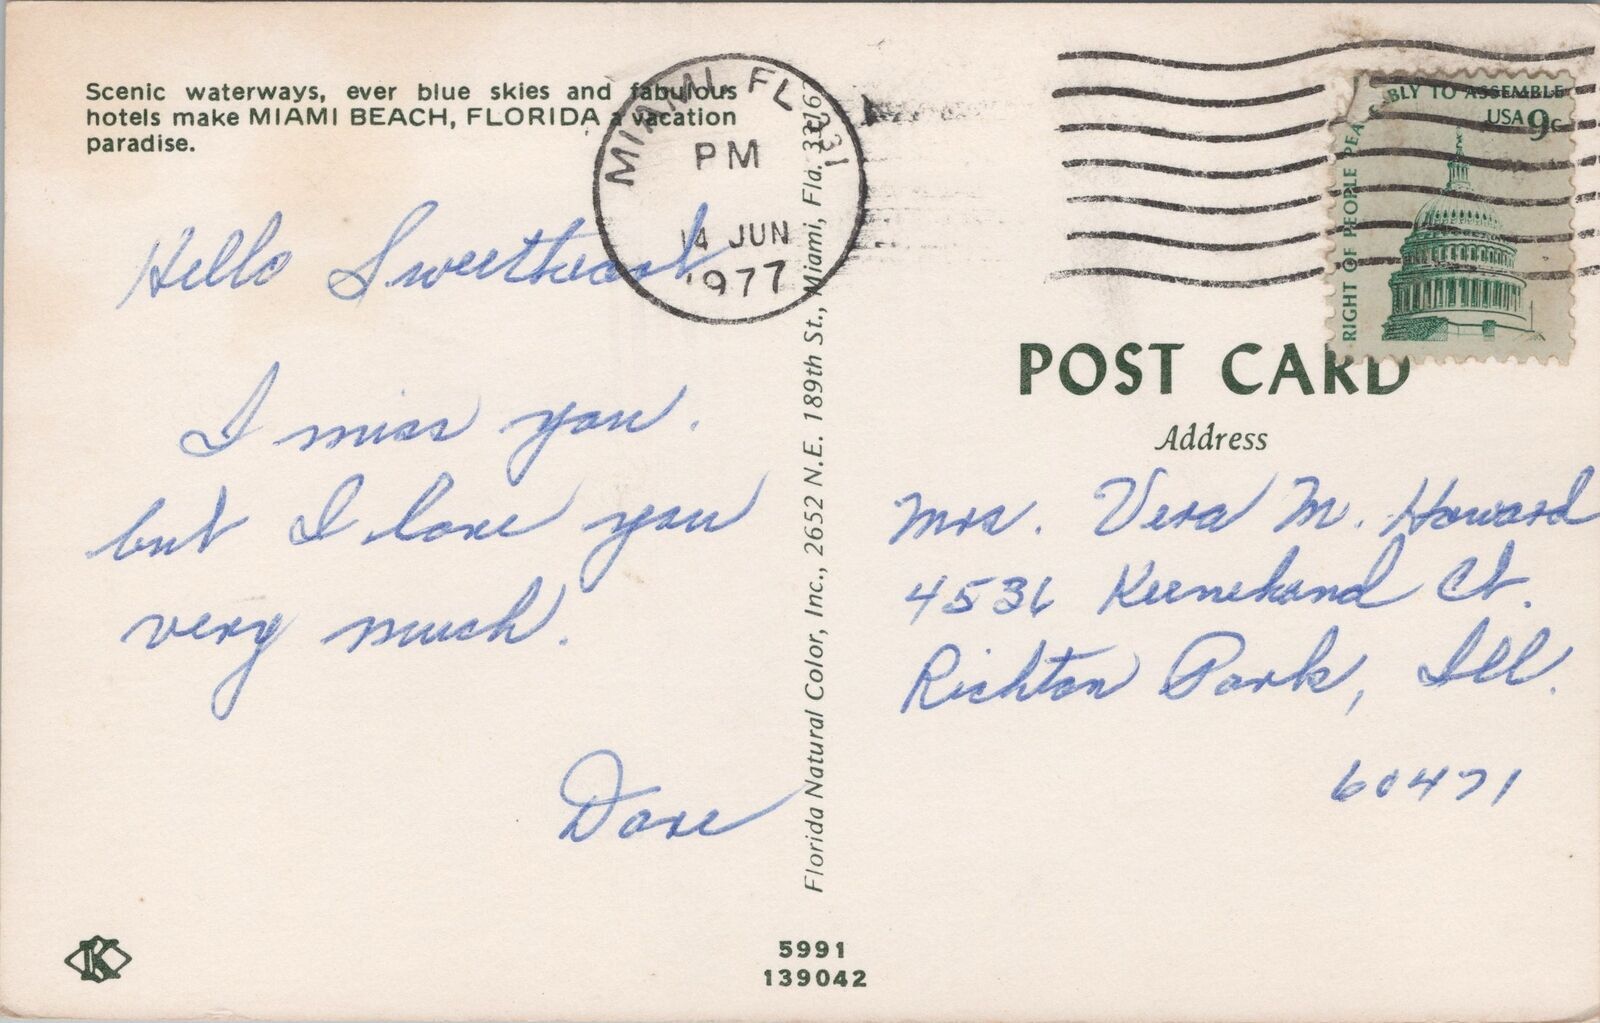 Scenic waterways, ever blue skies and fabulous
hotels make MIAMI BEACH, FLORIDA a vacation
paradise.
MIAMI, FL
PM
14 JUN
1977
Hello Sweetheart
I miss you.
but I love you
very much.
Dave
Florida Natural Color, Inc., 2652 N.E. 189th St., Miami, Fla. 33167
BLY TO ASSEMBLE
USA 9c
RIGHT OF PEOPLE PEA
POST CARD
Address
Mrs. Vera M. Howard
4536 Keenekand Ct.
Richton Park, Ill.
60471
K
5991
139042